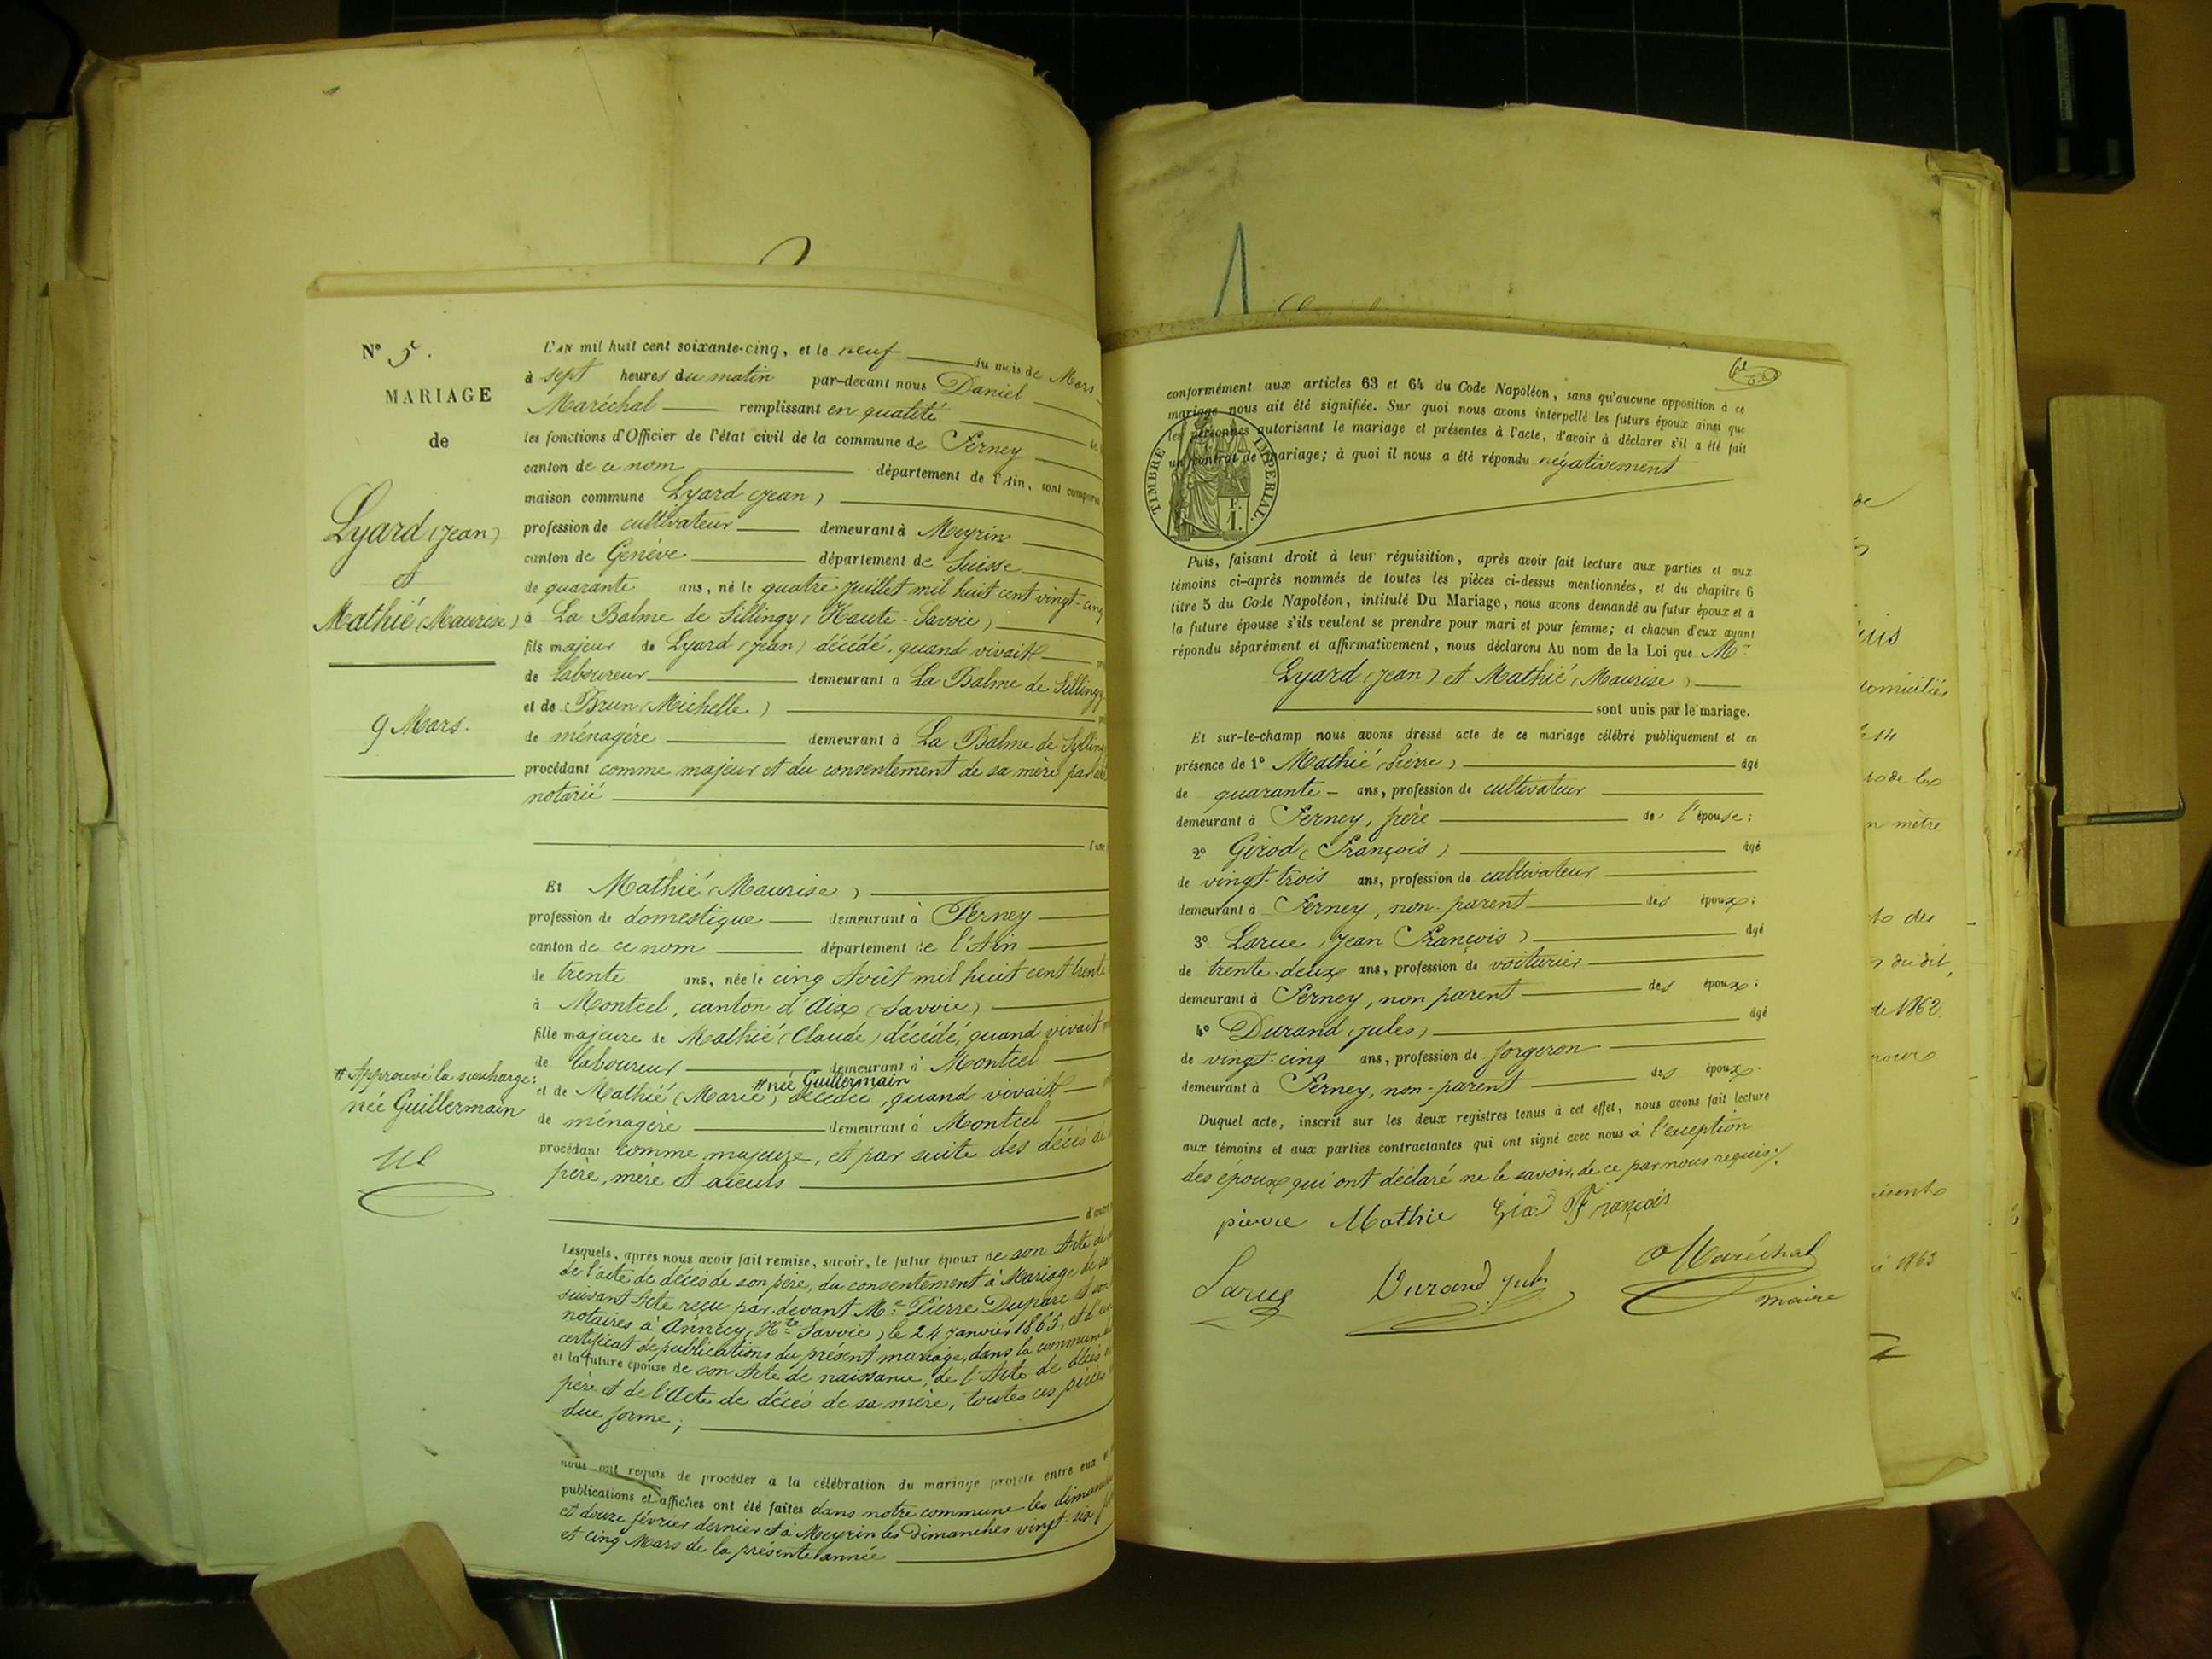 N° 5.
MARIAGE
de
Lyard (Jean)
et
Mathié (Maurise)
9 Mars.
# Approuvé la surcharge:
née Guillermain
L'AN mil huit cent soixante-cinq, et le neuf du mois de Mars
à sept heures du matin par-devant nous Daniel
Maréchal remplissant en qualité
les fonctions d'Officier de l'état civil de la commune de Ferney
canton de ce nom département de l'Ain, sont comparus
maison commune Lyard (Jean)
profession de cultivateur demeurant à Meyrin
canton de Genève département de Suisse
de quarante ans, né le quatre Juillet mil huit cent vingt-cinq
à La Balme de Sillingy (Haute-Savoie)
fils majeur de Lyard (Jean) décédé, quand vivait
de laboureur demeurant à La Balme de Sillingy
et de Brun (Michelle)
de ménagère demeurant à La Balme de Sylling
procédant comme majeur et du consentement de sa mère par
notarié
Et Mathié (Maurise)
profession de domestique demeurant à Ferney
canton de ce nom département de l'Ain
de trente ans, née le cinq Août mil huit cent trente
à Montcel, canton d'Aix (Savoie)
fille majeure de Mathié (Claude) décédé, quand vivait
de laboureur demeurant à Montcel
# née Guillermain
et de Mathié (Marie) décédée, quand vivait
de ménagère demeurant à Montcel
procédant comme majeure, et par suite des décès de
père, mère et aïeuls
Lesquels, après nous avoir fait remise, savoir, le futur époux de son Acte de
de l'acte de décès de son père, du consentement à Mariage de sa
suivant Acte reçu par-devant Me Pierre Duparc et son
notaires à Annecy, (Hte Savoie) le 24 Janvier 1865, et d'un
certificat de publications du présent mariage, dans la commune
et la future épouse de son Acte de naissance, de l'Acte de décès
père et de l'Acte de décès de sa mère, toutes ces pièces
due forme;
nous ont requis de procéder à la célébration du mariage projeté entre eux
publications et affiches ont été faites dans notre commune les dimanches
et douze février dernier et à Meyrin les Dimanches vingt-six
et cinq Mars de la présente année
conformément aux articles 63 et 64 du Code Napoléon, sans qu'aucune opposition à ce
mariage nous ait été signifiée. Sur quoi nous avons interpellé les futurs époux ainsi que
les personnes autorisant le mariage et présentes à l'acte, d'avoir à déclarer s'il a été fait
un contrat de mariage; à quoi il nous a été répondu négativement
TIMBRE IMPÉRIAL
1 F.
Puis, faisant droit à leur réquisition, après avoir fait lecture aux parties et aux
témoins ci-après nommés de toutes les pièces ci-dessus mentionnées, et du chapitre 6
titre 5 du Code Napoléon, intitulé Du Mariage, nous avons demandé au futur époux et à
la future épouse s'ils veulent se prendre pour mari et pour femme; et chacun d'eux ayant
répondu séparément et affirmativement, nous déclarons Au nom de la Loi que M
Lyard (Jean) et Mathié (Maurise)
sont unis par le mariage.
Et sur-le-champ nous avons dressé acte de ce mariage célébré publiquement et en
présence de 1° Mathié (Pierre) âgé
de quarante ans, profession de cultivateur
demeurant à Ferney, frère de l'épouse;
2° Girod (François) âgé
de vingt-trois ans, profession de cultivateur
demeurant à Ferney, non-parent des époux;
3° Larue (Jean François) âgé
de trente-deux ans, profession de voiturier
demeurant à Ferney, non parent des époux;
4° Durand (Jules) âgé
de vingt-cinq ans, profession de forgeron
demeurant à Ferney, non-parent des époux.
Duquel acte, inscrit sur les deux registres tenus à cet effet, nous avons fait lecture
aux témoins et aux parties contractantes qui ont signé avec nous à l'exception
des époux qui ont déclaré ne le savoir, de ce par nous requis.
pierre Mathie Girod François
Larue Durand Jules Maréchal
maire
de
domiciliés
n mètre
de 1862.
1863